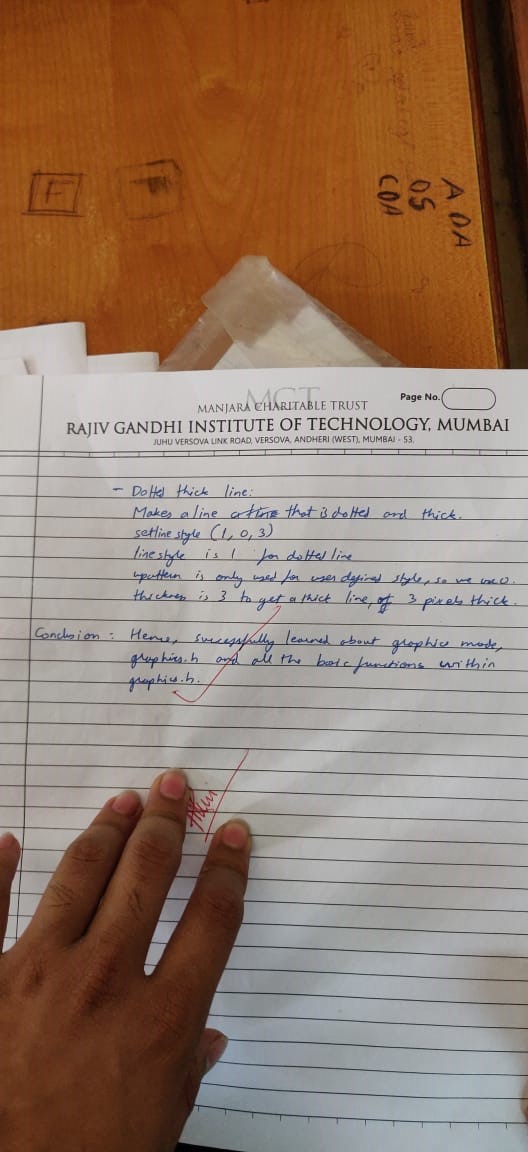 F
A DA
OS
COA
MCT
MANJARA CHARITABLE TRUST
Page No.
RAJIV GANDHI INSTITUTE OF TECHNOLOGY, MUMBAI
JUHU VERSOVA LINK ROAD, VERSOVA, ANDHERI (WEST), MUMBAI - 53.
- Dotted thick line:
Makes a line that is dotted and thick.
setlinestyle (1, 0, 3)
linestyle is 1 for dotted line
upattern is only used for user defined style, so we use 0.
thickness is 3 to get a thick line, of 3 pixels thick.
Conclusion : Hence, successfully learned about graphics mode,
graphics.h and all the basic functions within
graphics.h.